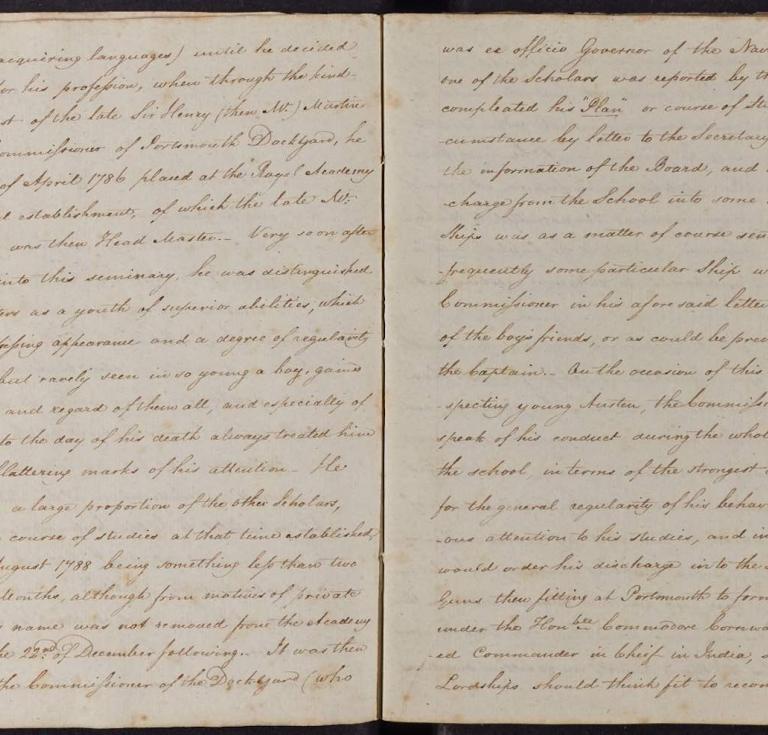 acquiring languages) until he decided
for his profession, when through the kind-
st of the late Sir Henry (then Mr.) Martin
Commissioner of Portsmouth Dockyard, he
of April 1786 placed at the Royal Academy
l establishment, of which the late Mr.
was then Head Master._ Very soon after
into this seminary, he was distinguished
ters as a youth of superior abilities, which
essing appearance and a degree of regularity
but rarely seen in so young a boy, gained
and regard of them all, and especially of
to the day of his death always treated him
flattering marks of his attention_ He
a large proportion of the other Scholars,
course of studies at that time established,
August 1788 being something less than two
Months, although from motives of private
name was not removed from the Academy
the 22nd. of December following._ It was then
the Commissioner of the Dockyard (who
was ex officio Governor of the Nav
one of the Scholars was reported by th
compleated his "Plan" or course of Stu
-cumstance by letter to the Secretary
the information of the Board, and
-charge from the School into some
Ships was as a matter of course sen
-frequently some particular Ship w
Commissioner in his afore said letter
of the boy's friends, or as could be prev
the Captain._ On the occasion of this
-specting young Austen, the Commiss
speak of his conduct during the whol
the school, in terms of the strongest
for the general regularity of his behav
-ous attention to his studies, and in
would order his discharge in to the
Guns then fitting at Portsmouth to form
under the Honble Commodore Cornwa
-ed Commander in Cheif in India, 
Lordships should think fit to recom